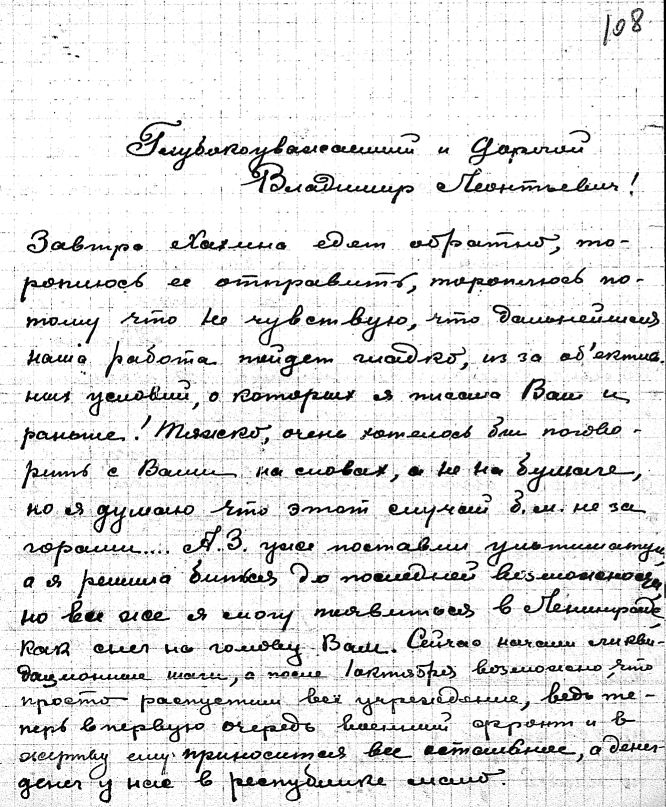 108
Глубокоуважаемый и Дорогой
Владимир Леонтьевич!
Завтра едет обратно, то-
роплюсь ее отправить, тороплюсь по-
тому что не чувствую, что дальнейшая
наша работа пойдет гладко, из за об'ектив-
ных условий, о которых я писала Вам и
раньше! Тяжело, очень хотелось бы погово-
рить с Вами на словах, а не на бумаге,
но я думаю что этот случай б.м. не за
горами.... А.З. уже поставил ультиматум,
а я решила биться до последней возможности,
но все же я могу появиться в Ленинграде
как снег на голову Вам. Сейчас начали ликви-
дационные шаги, а после 1 октября возможно, что
просто распустим все учреждение, ведь те-
перь в первую очередь военный фронт и в
жертву ему приносится все остальное, а денег
денег у нас в республике мало.